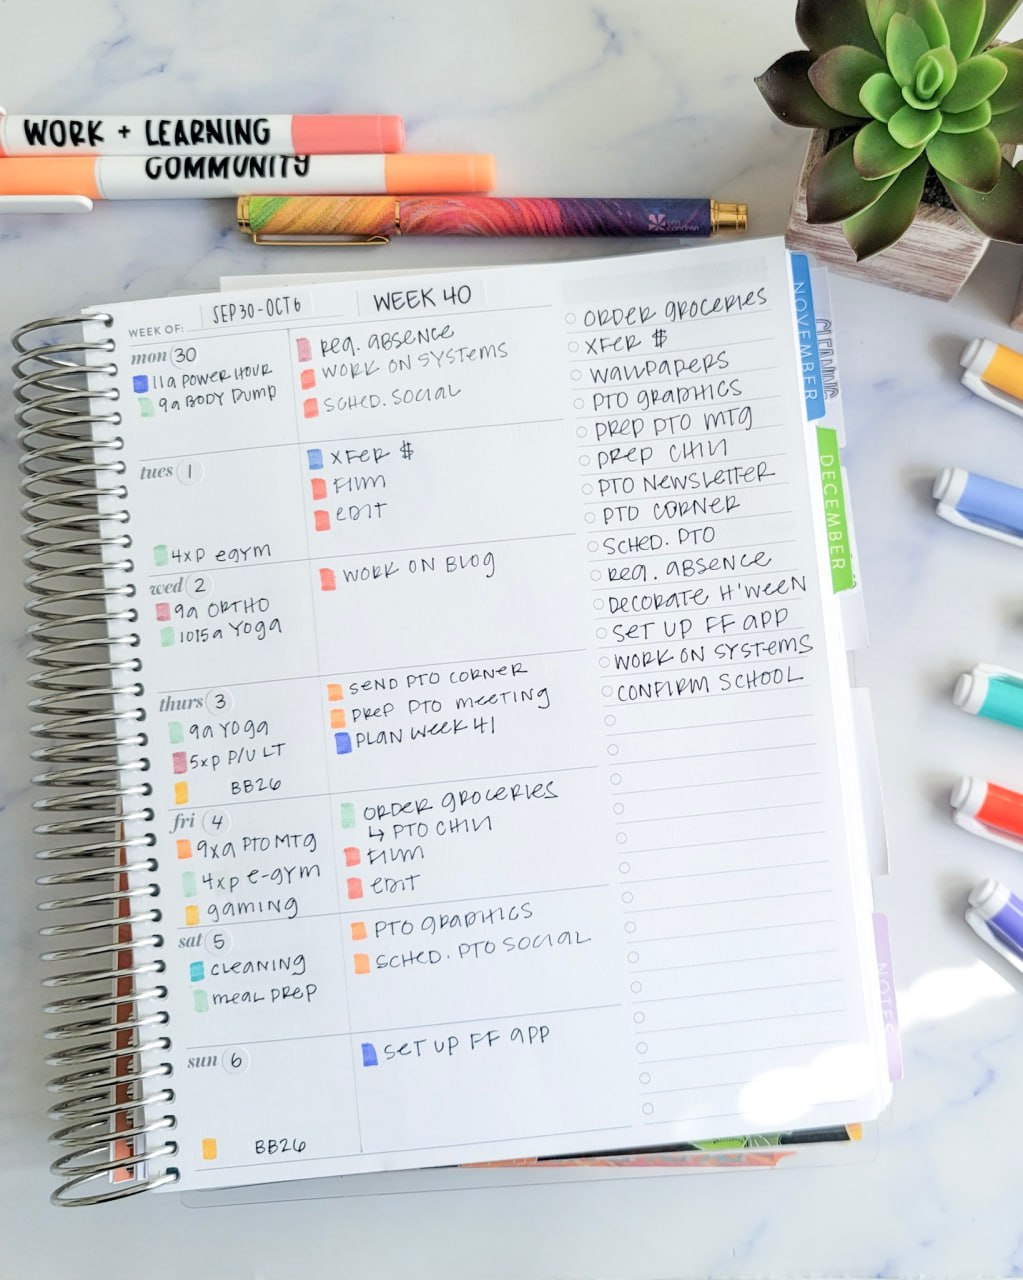 WORK + LEARNING
COMMUNITY
erin condren
WEEK OF: SEP 30 - OCT 6
WEEK 40
mon 30
11a POWER HOUR
9a BODY PUMP
REQ. ABSENCE
WORK ON SYSTEMS
SCHED. SOCIAL
tues 1
4xP EGYM
XFER $
FILM
EDIT
wed 2
9a ORTHO
1015a YOGA
WORK ON BLOG
thurs 3
9a YOGA
5xP P/U LT
BB26
SEND PTO CORNER
PREP PTO MEETING
PLAN WEEK 41
fri 4
9xa PTO MTG
4xP E-GYM
GAMING
ORDER GROCERIES
↳ PTO CHIN
FILM
EDIT
sat 5
CLEANING
MEAL PREP
PTO GRAPHICS
SCHED. PTO SOCIAL
sun 6
BB26
SET UP FF APP
ORDER GROCERIES
XFER $
WALLPAPERS
PTO GRAPHICS
PREP PTO MTG
PREP CHIN
PTO NEWSLETTER
PTO CORNER
SCHED. PTO
REQ. ABSENCE
DECORATE H'WEEN
SET UP FF APP
WORK ON SYSTEMS
CONFIRM SCHOOL
NOVEMBER
CLEANING
DECEMBER
NOTES